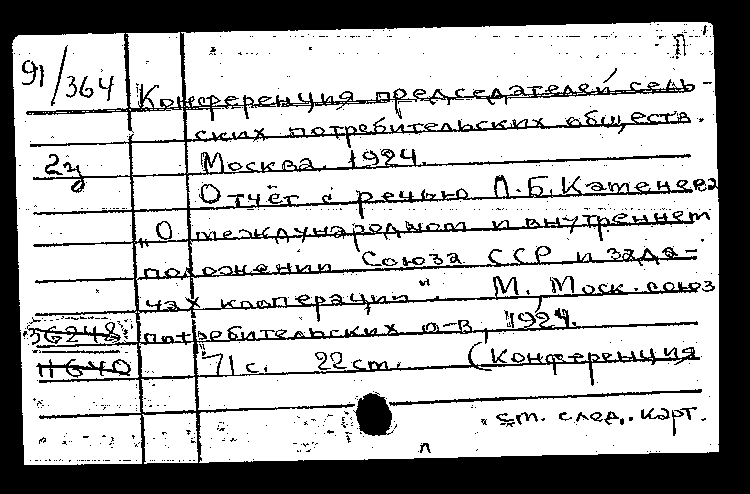 91/364
Конференция председателей сель-
ских потребительских обществ.
2ц Москва. 1924.
Отчёт с речью Л.Б. Каменева
„О международном и внутреннем
положении Союза ССР и зада-
чах кооперации". М., Моск. союз
36248 потребительских о-в, 1924.
11640 71 с. 22 ст. (Конференция
ст. след. карт.
л